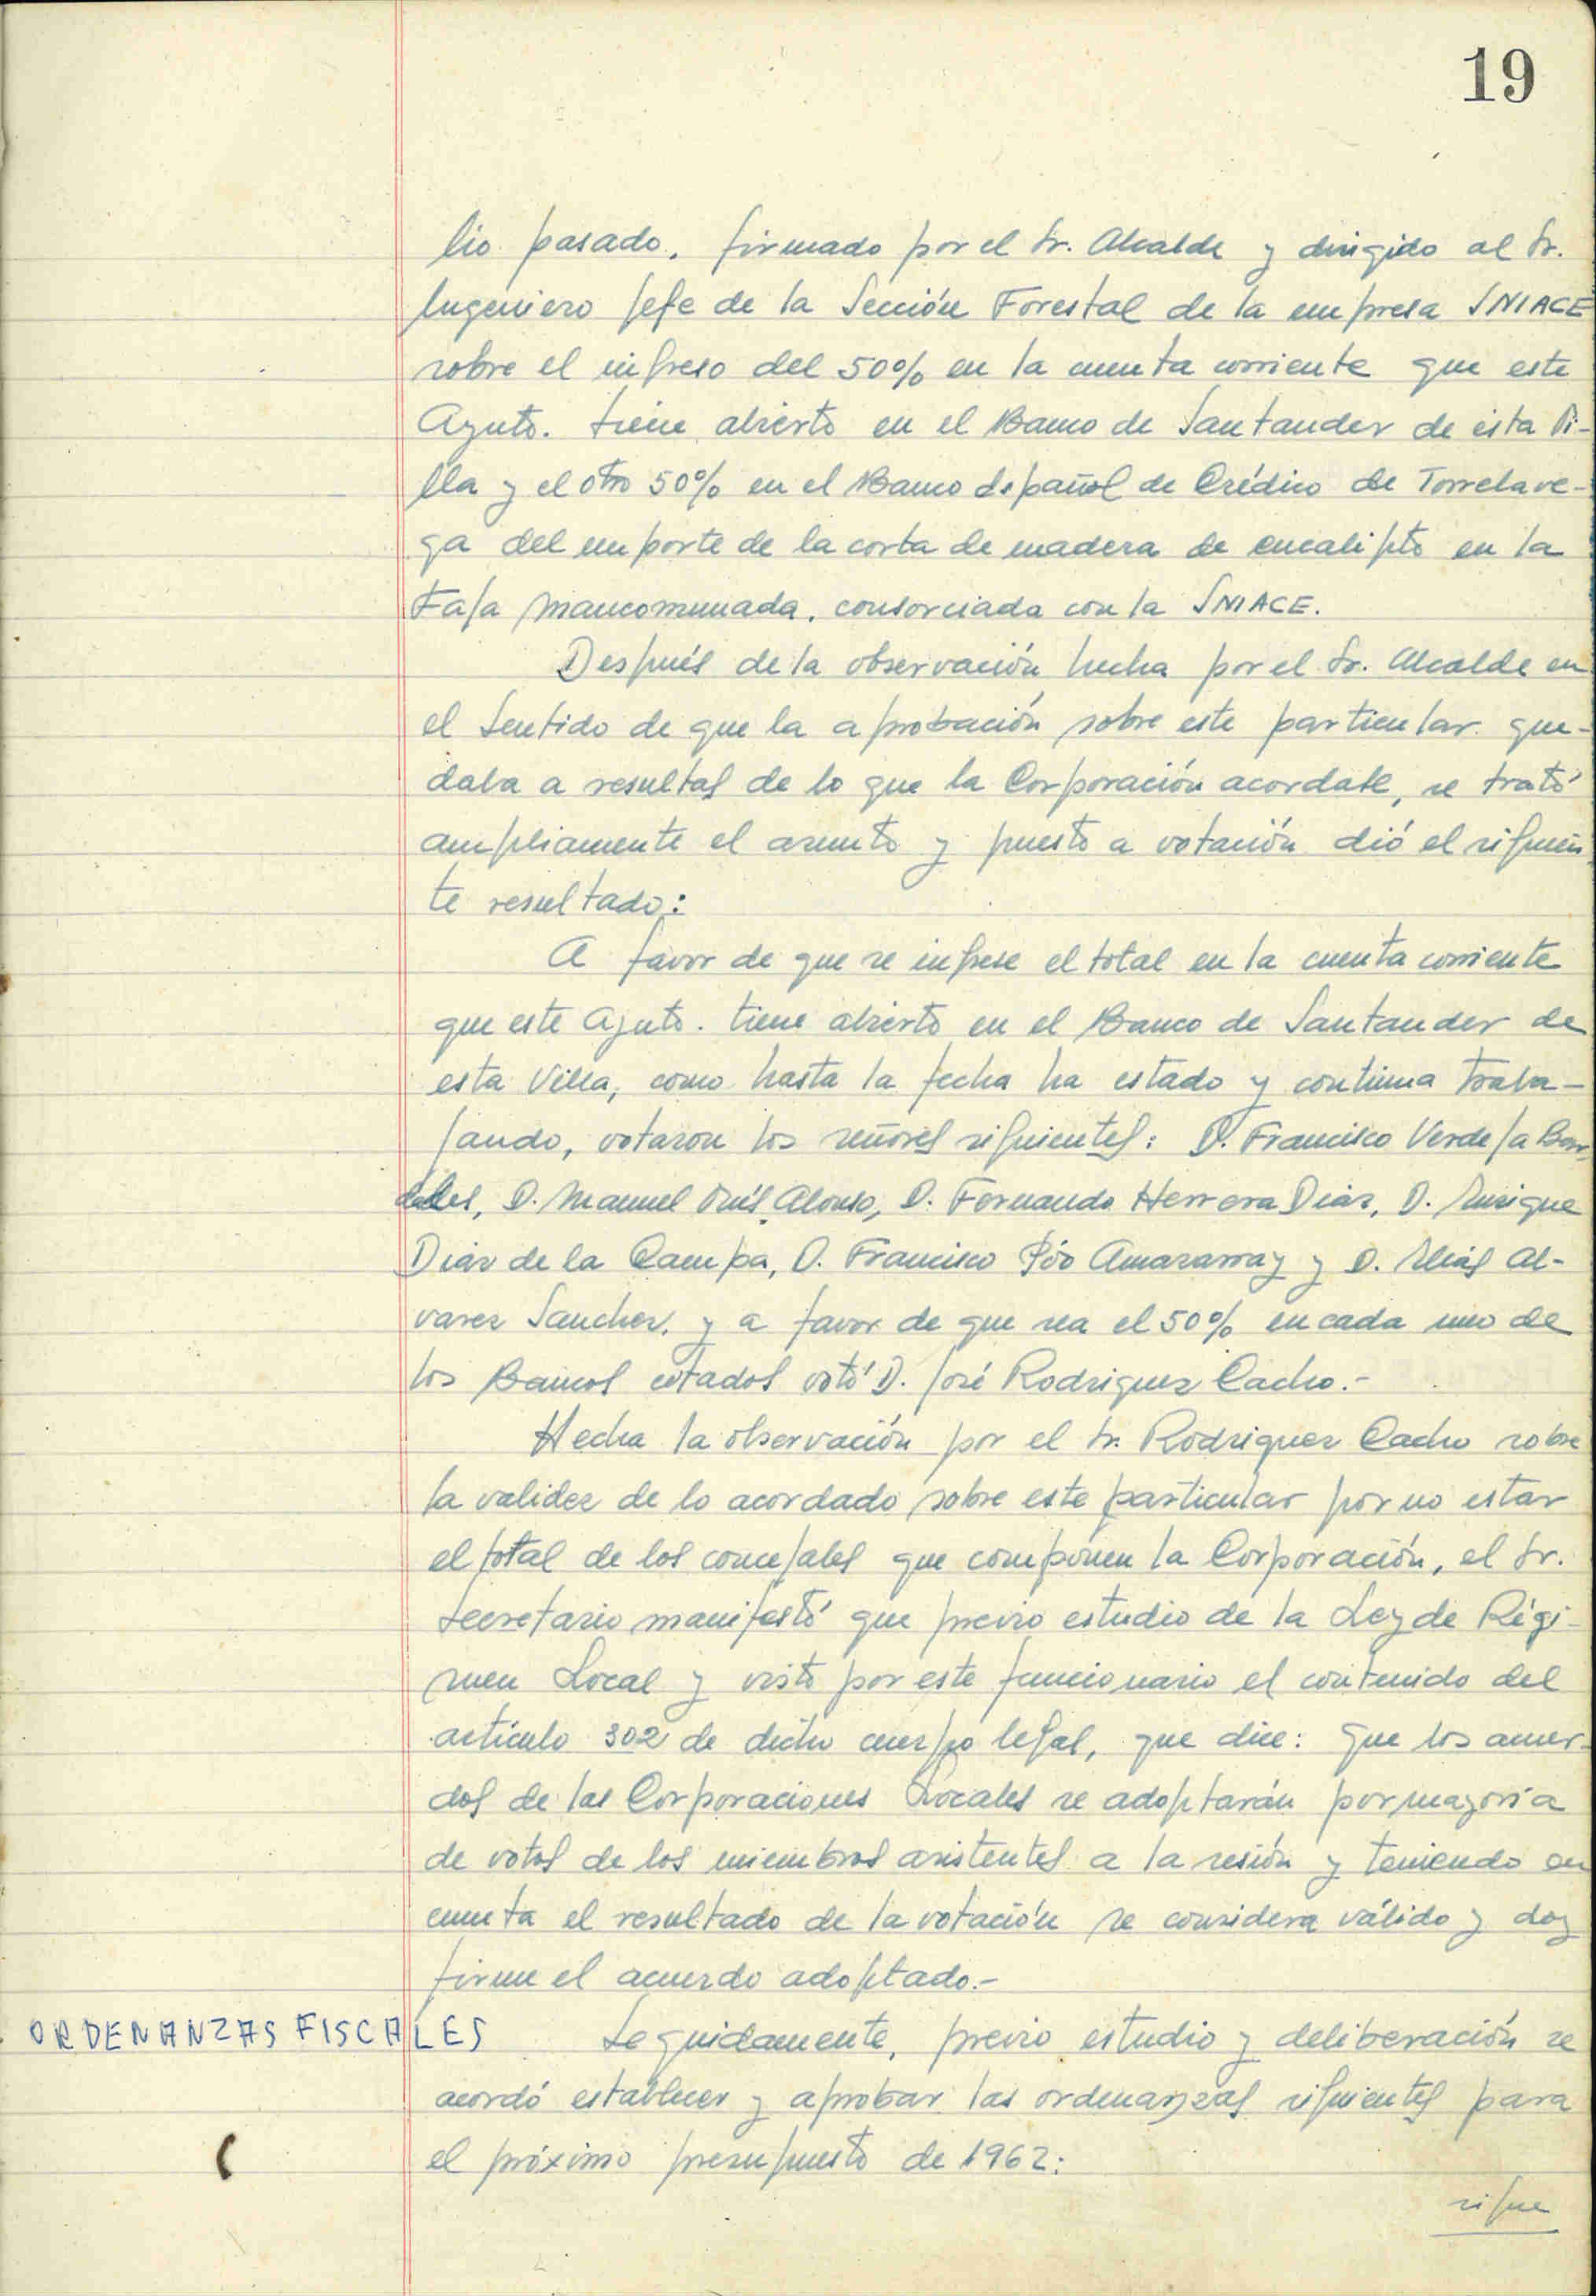 19
lio pasado, firmado por el Sr. Alcalde y dirigido al Sr.
Ingeniero Jefe de la Sección Forestal de la empresa SNIACE
sobre el ingreso del 50% en la cuenta corriente que este
Ayuto. tiene abierto en el Banco de Santander de ésta Vi-
lla y el otro 50% en el Banco Español de Crédico de Torrelave-
ga del importe de la corta de madera de eucalipto en la
Faja Mancomunada, consorciada con la SNIACE.
Después de la observación hecha por el Sr. Alcalde en
el Sentido de que la aprobación sobre este particular que-
daba a resultas de lo que la Corporación acordase, se trató
ampliamente el asunto y puesto a votación dió el siguien
te resultado:
A favor de que se ingrese el total en la cuenta corriente
que este Ayuto. tiene abierto en el Banco de Santander de
esta Villa, como hasta la fecha ha estado y continua traba-
jando, votaron los señores siguientes: D. Francisco Verdeja
D. Manuel Alonso, D. Fernando Herrera Diaz, D. Enrique
Diaz de la Campa, D. Francisco Pío Amararray y D. Elias Al-
varez Sanchez, y a favor de que sea el 50% en cada uno de
los Bancos citados votó D. José Rodriguez Cacho.-
Hecha la observación por el Sr. Rodriguez Cacho sobre
la validez de lo acordado sobre este particular por no estar
el total de los concejales que componen la Corporación, el Sr.
Secretario manifestó que previo estudio de la Ley de Régi-
men Local y visto por este funcionario el contenido del
artículo 302 de dicho cuerpo legal, que dice: que los acuer-
dos de las Corporaciones Locales se adoptarán por mayoría
de votos de los miembros asistentes a la sesión y teniendo en
cuenta el resultado de la votación se considera válido y doy
firme el acuerdo adoptado.-
ORDENANZAS FISCALES
Seguidamente, previo estudio y deliberación se
acordó establecer y aprobar las ordenanzas siguientes para
el próximo presupuesto de 1962:
sigue